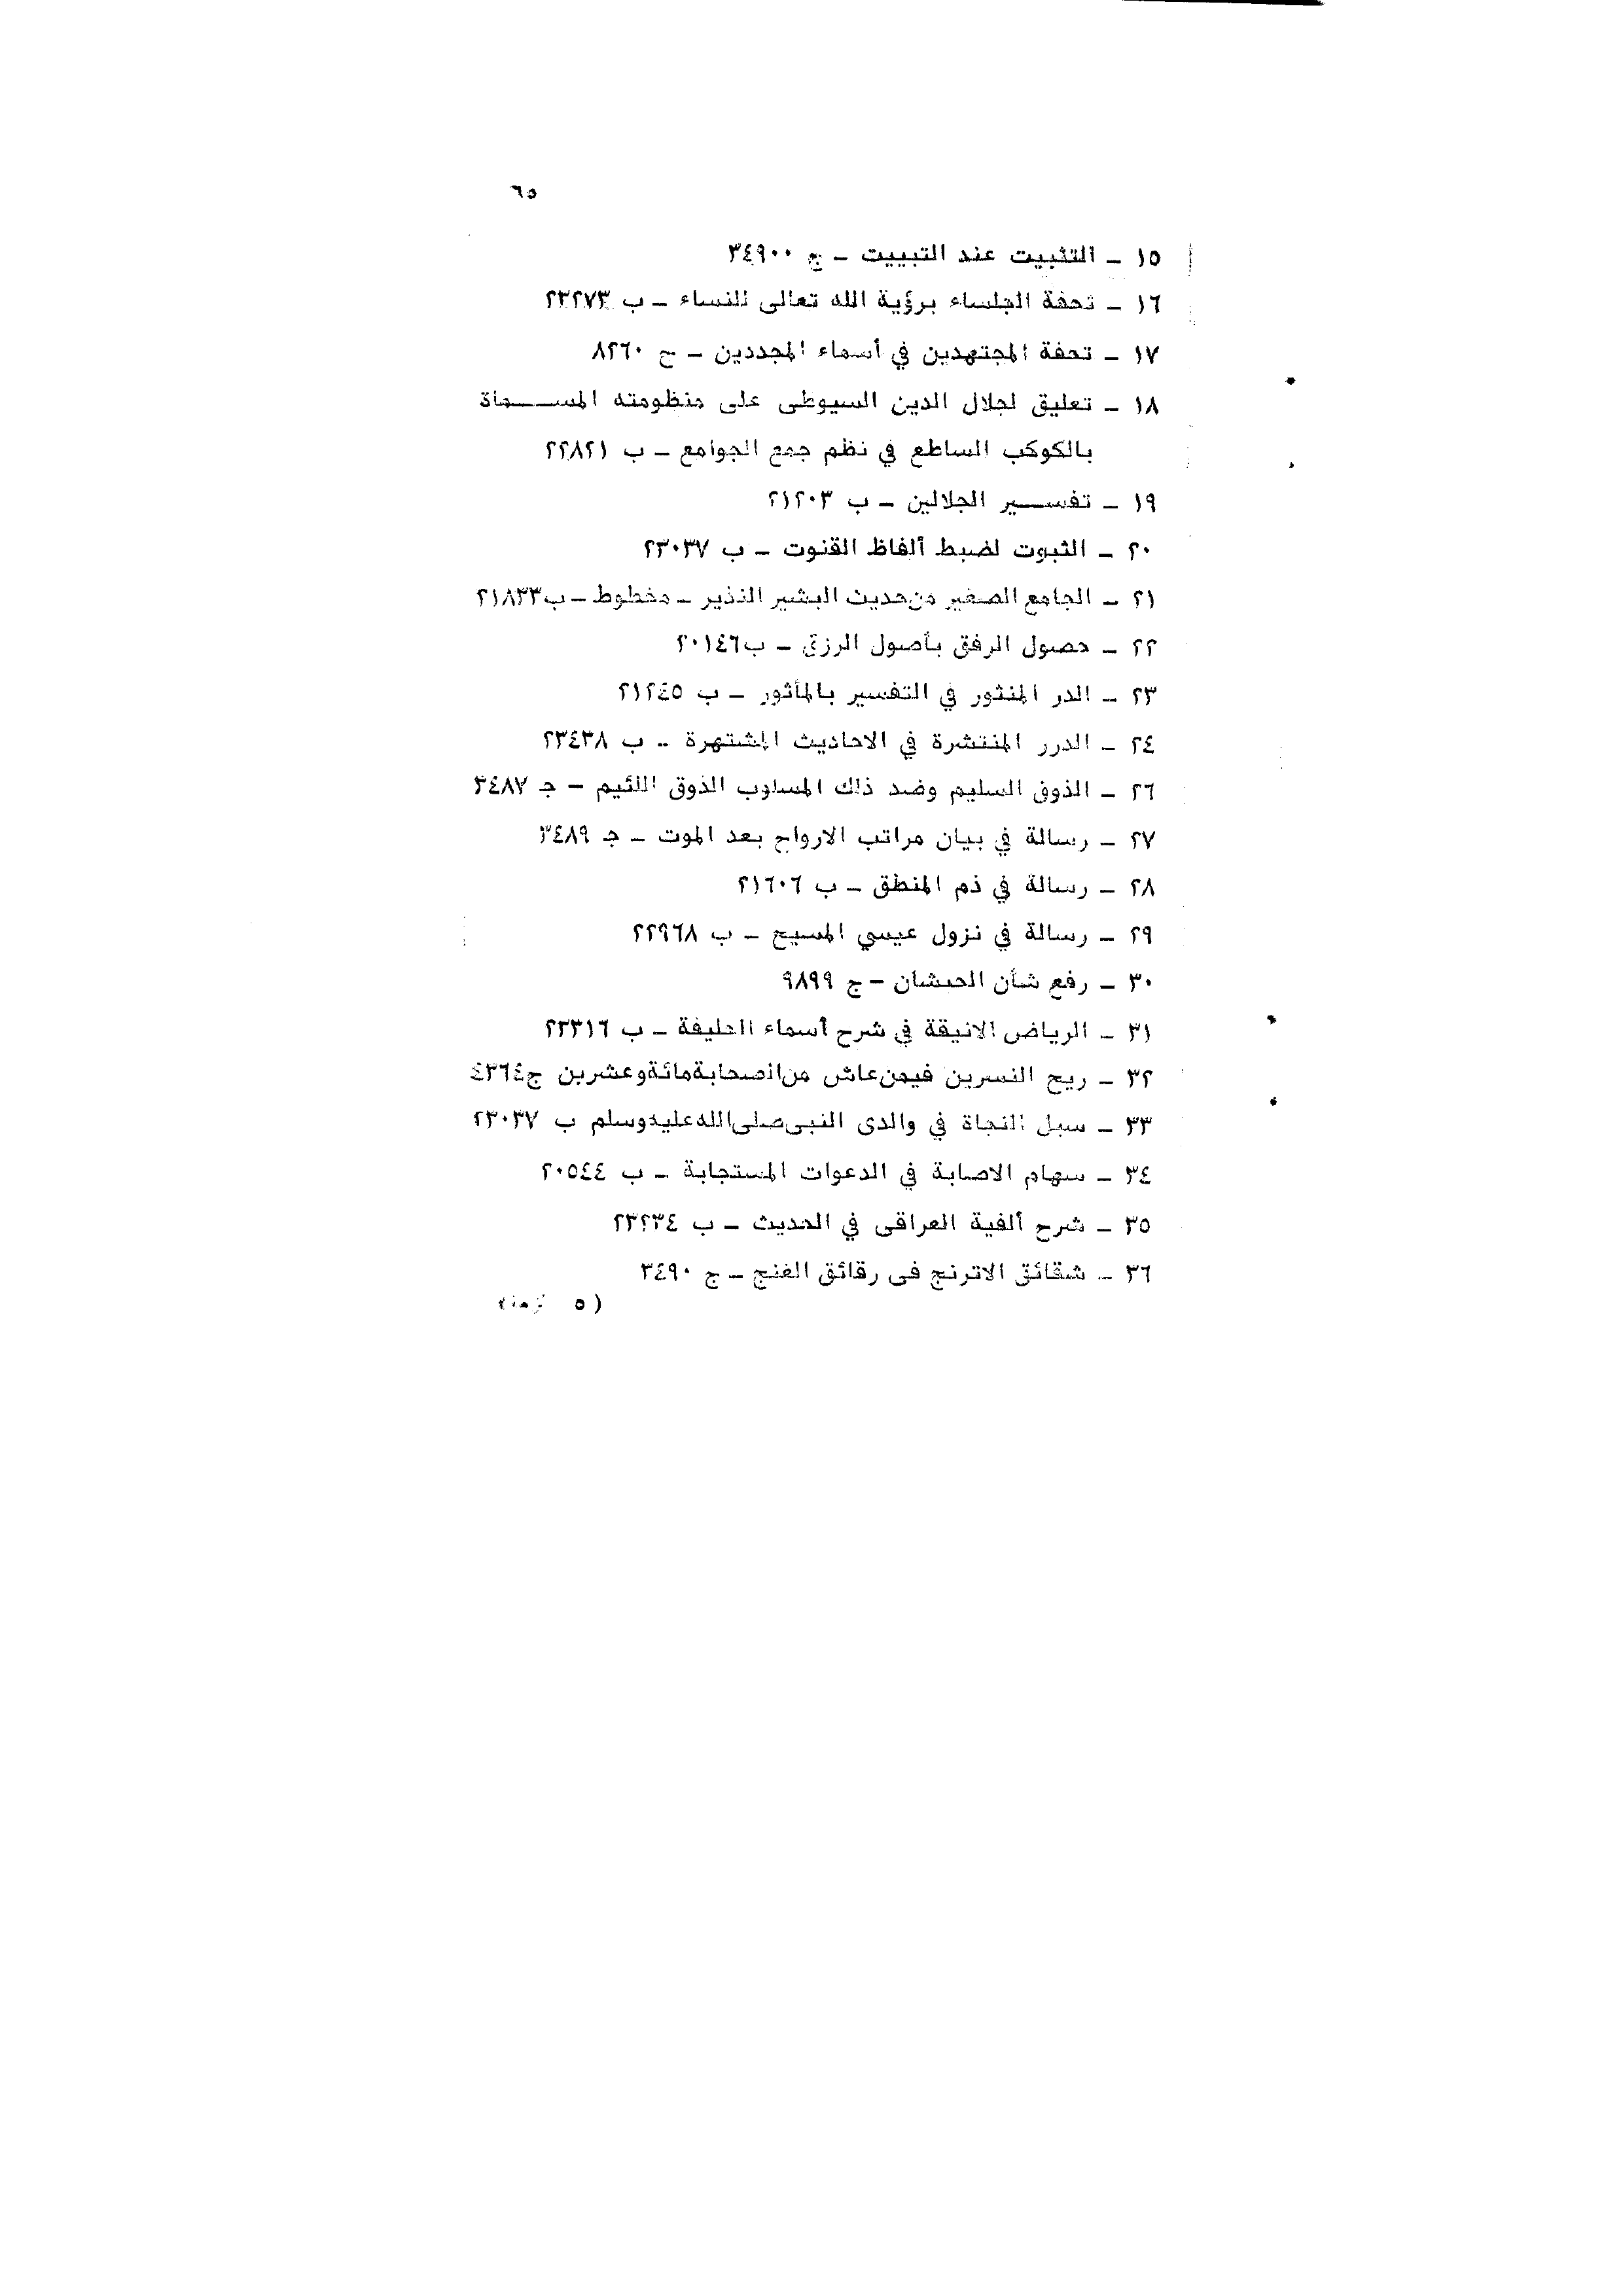 ٦٥
١٥ – التثبيت عند التبييت – ج ٣٤٩٠٠
١٦ – تحفة الجلساء برؤية الله تعالى للنساء – ب ٢٣٢٧٣
١٧ – تحفة المجتهدين في أسماء المجددين – ج ٨٢٦٠
١٨ – تعليق لجلال الدين السيوطى على منظومته المســـماة
بالكوكب الساطع في نظم جمع الجوامع – ب ٢٢٨٢١
١٩ – تفســـير الجلالين – ب ٢١٢٠٣
٢٠ – الثبوت لضبط ألفاظ القنوت – ب ٢٣٠٣٧
٢١ – الجامع الصغير من حديث البشير النذير – مخطوط – ب ٢١٨٣٣
٢٢ – حصول الرفق بأصول الرزق – ب ٢٠١٤٦
٢٣ – الدر المنثور في التفسير بالمأثور – ب ٢١٢٤٥
٢٤ – الدرر المنتشرة في الاحاديث المشتهرة – ب ٢٣٤٣٨
٢٦ – الذوق السليم وضد ذلك المسلوب الذوق اللئيم – جـ ٣٤٨٧
٢٧ – رسالة في بيان مراتب الارواح بعد الموت – جـ ٣٤٨٩
٢٨ – رسالة في ذم المنطق – ب ٢١٦٠٦
٢٩ – رسالة في نزول عيسي المسيح – ب ٢٢٩٦٨
٣٠ – رفع شأن الحبشان – ج ٩٨٩٩
٣١ – الرياض الانيقة في شرح أسماء الخليفة – ب ٢٣٣١٦
٣٢ – ريح النسرين فيمن عاش من الصحابة مائة وعشرين ج ٤٣٦٤
٣٣ – سبل النجاة في والدى النبى صلى الله عليه وسلم ب ٢٣٠٣٧
٣٤ – سهام الاصابة في الدعوات المستجابة – ب ٢٠٥٤٤
٣٥ – شرح ألفية العراقى في الحديث – ب ٢٣٢٣٤
٣٦ – شقائق الاترنج فى رقائق الغنج – ج ٣٤٩٠
(٥